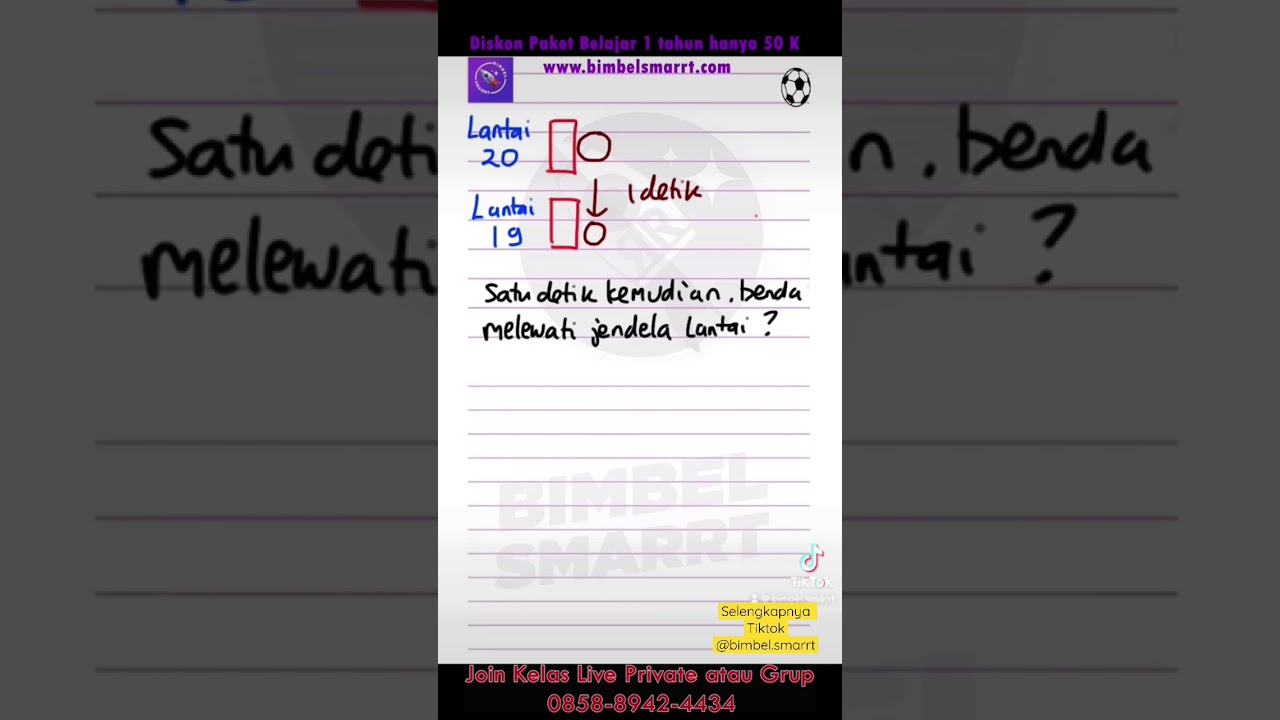 Diskon Paket Belajar 1 tahun hanya 50 K
www.bimbelsmarrt.com
BIMBEL
SMARRT
Lantai
20
1 detik
Lantai
19
Satu detik kemudian, benda
melewati jendela Lantai ?
BIMBEL
SMARRT
TikTok
@bimbel.smarrt
Selengkapnya
Tiktok
@bimbel.smarrt
Join Kelas Live Private atau Grup
0858-8942-4434
Satu deti
n, benda
melewati
antai ?